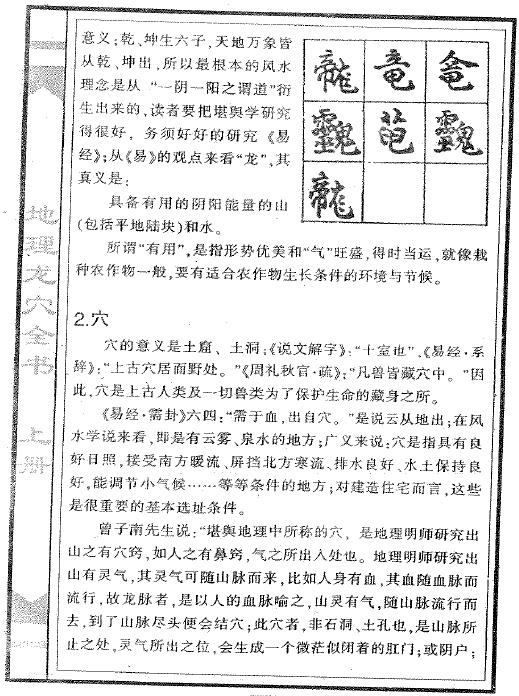 意义;乾、坤生六子,天地万象皆
从乾、坤出,所以最根本的风水
理念是从 “一阴一阳之谓道”衍
生出来的,读者要把堪舆学研究
得很好，务须好好的研究《易
经》;从《易》的观点来看“龙”,其
真义是:
具备有用的阴阳能量的山
(包括平地陆块)和水。
所谓“有用”,是指形势优美和“气”旺盛,得时当运,就像栽
种农作物一般,要有适合农作物生长条件的环境与节候。
2.穴
穴的意义是土窟、土洞;《说文解字》:“十室也”、《易经·系
辞》:“上古穴居而野处。”《周礼秋官·疏》:“凡兽皆藏穴中。”因
此,穴是上古人类及一切兽类为了保护生命的藏身之所。
《易经·需卦》六四:“需于血,出自穴。”是说云从地出;在风
水学说来看,即是有云雾、泉水的地方;广义来说:穴是指具有良
好日照,接受南方暖流、屏挡北方寒流、排水良好、水土保持良
好,能调节小气候……等等条件的地方;对建造住宅而言,这些
是很重要的基本选址条件。
曾子南先生说:“堪舆地理中所称的穴，是地理明师研究出
山之有穴窍,如人之有鼻窍,气之所出入处也。地理明师研究出
山有灵气,其灵气可随山脉而来,比如人身有血,其血随血脉而
流行,故龙脉者,是以人的血脉喻之,山灵有气,随山脉流行而
去,到了山脉尽头便会结穴;此穴者,非石洞、土孔也,是山脉所
止之处,灵气所出之位,会生成一个微茫似闭着的肛门;或阴户;
地理龙穴全书
上册